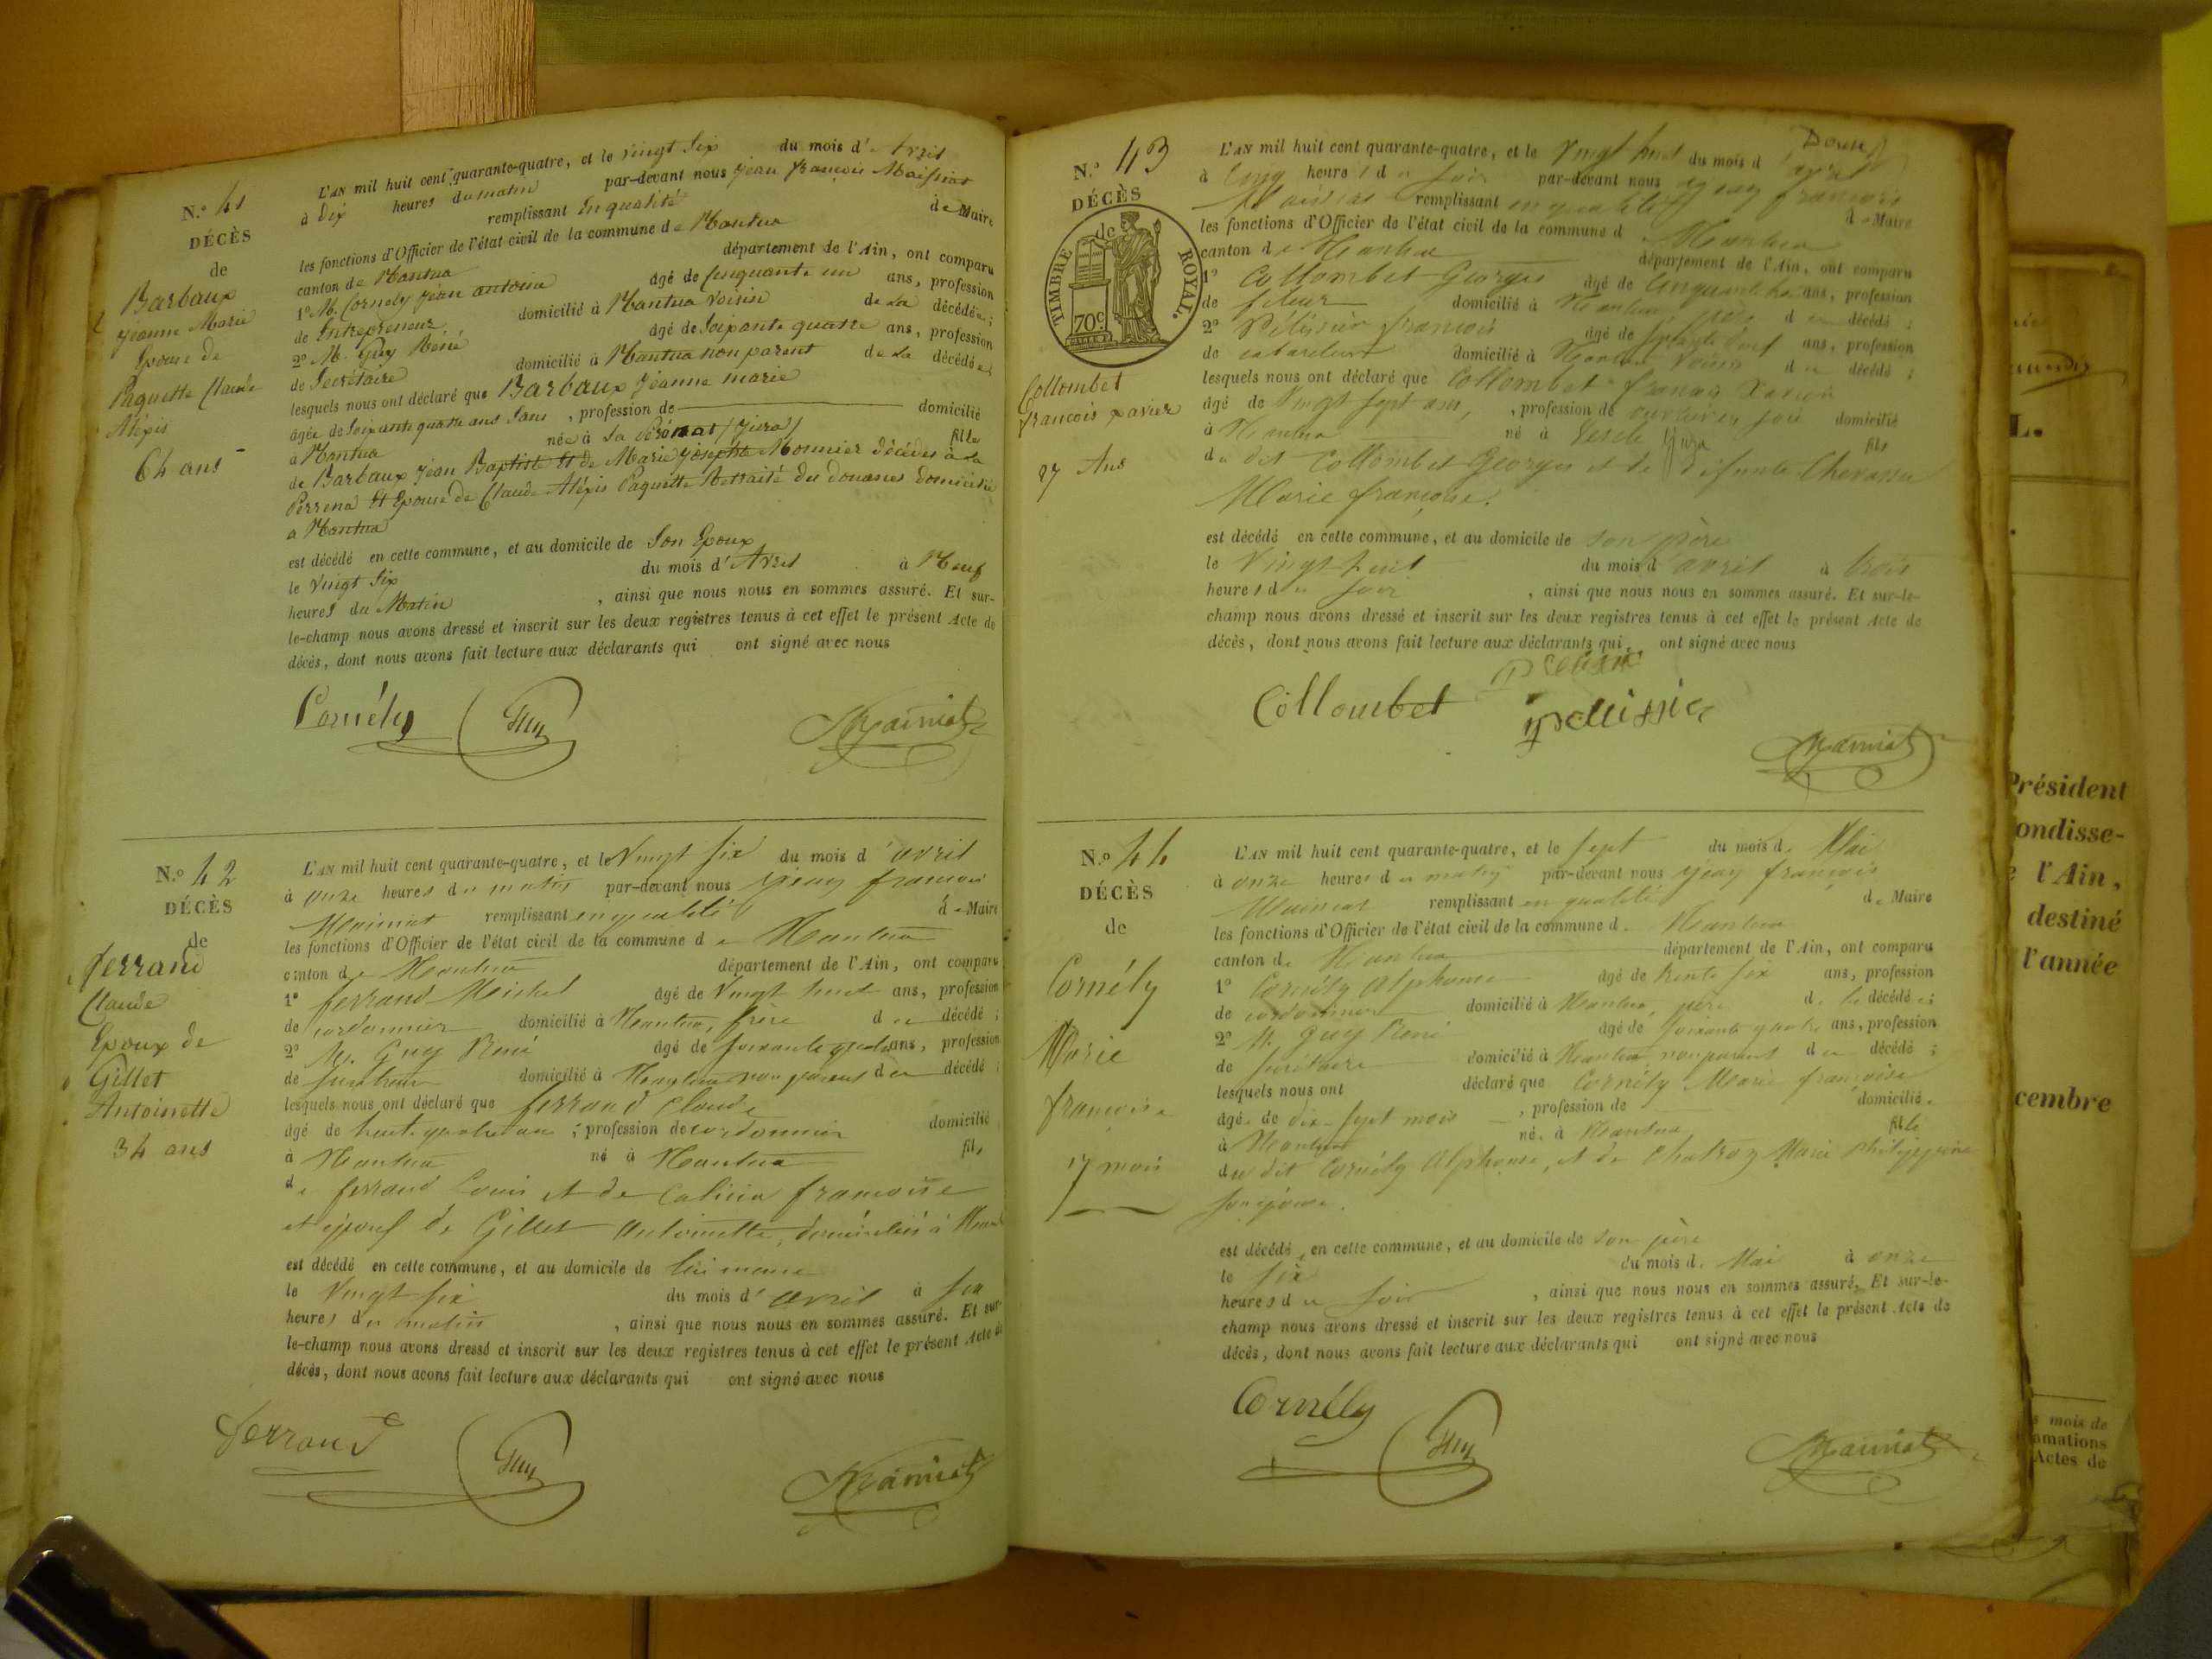 N.° 41
DÉCÈS
de
Barbaux
Jeanne Marie
Epouse de
Paquette Claude
Aléxis
64 ans
L'AN mil huit cent quarante-quatre, et le vingt Six du mois d'Avril
à Dix heures du matin par-devant nous Jean françois Maissiat
remplissant En qualité de Maire
les fonctions d'Officier de l'état civil de la commune de Mantua
canton de Mantua département de l'Ain, ont comparu
1° M. Cornely Jean antoine âgé de Cinquante un ans, profession
de Entrepreneur domicilié à Mantua voisin de La décédée;
2° M. Guy René âgé de Soixante quatre ans, profession
de Secrétaire domicilié à Mantua non parent de La décédée
lesquels nous ont déclaré que Barbaux Jeanne marie
âgée de Soixante quatre ans Sans, profession de domicilié
à Mantua née à La (Jura) fille
de Barbaux Jean Baptiste Et de Marie Josephte Monnier décédés à La
Et Epouse de Claude Aléxis Paquette Retraité du douanes domicilié
a Mantua
est décédé en cette commune, et au domicile de Son Epoux
le vingt Six du mois d'Avril à Neuf
heures du Matin, ainsi que nous nous en sommes assuré. Et sur-
le-champ nous avons dressé et inscrit sur les deux registres tenus à cet effet le présent Acte de
décès, dont nous avons fait lecture aux déclarants qui ont signé avec nous
Cornély Guy Maissiat
N.° 42
DÉCÈS
de
ferrand
Claude
Epoux de
Gillet
Antoinette
34 ans
L'AN mil huit cent quarante-quatre, et le Vingt Six du mois d'avril
à onze heures du matin par-devant nous Jean françois
Maissiat remplissant en qualité de Maire
les fonctions d'Officier de l'état civil de la commune de Mantua
canton de Mantua département de l'Ain, ont comparu
1° ferrand Michel âgé de Vingt huit ans, profession
de cordonnier domicilié à Mantua, frère du décédé;
2° M. Guy René âgé de soixante quatre ans, profession
de secrétaire domicilié à Mantua non parent du décédé;
lesquels nous ont déclaré que ferrand Claude
âgé de trente quatre ans; profession de cordonnier domicilié
à Mantua né à Mantua fils
de ferrand Louis et de françoise
et époux de Gillet Antoinette, domiciliés à
est décédé en cette commune, et au domicile de lui meme
le Vingt six du mois d'avril à six
heures du matin, ainsi que nous nous en sommes assuré. Et sur-
le-champ nous avons dressé et inscrit sur les deux registres tenus à cet effet le présent Acte de
décès, dont nous avons fait lecture aux déclarants qui ont signé avec nous
ferrand Guy Maissiat
N.° 43
DÉCÈS
de
TIMBRE ROYAL.
70c
Collombet
francois xavier
27 Ans
L'AN mil huit cent quarante-quatre, et le Vingt huit du mois d'avril
à Cinq heures du soir par-devant nous Jean françois
Maissiat remplissant en qualité de Maire
les fonctions d'Officier de l'état civil de la commune d Mantua
canton de Mantua département de l'Ain, ont comparu
1° Collombet Georges âgé de Cinquante ans, profession
de fileur domicilié à Mantua, père du décédé;
2° Pélissier françois âgé de ans, profession
de cabareteur domicilié à Mantua Voisin du décédé;
lesquels nous ont déclaré que Collombet françois Xavier
âgé de Vingt sept ans, profession de ouvrier en soie domicilié
à Mantua né à Jura fils
du dit Collombet Georges et de défunte Chevassu
Marie françoise.
est décédé en cette commune, et au domicile de son père
le Vingt huit du mois d'avril à trois
heures du soir, ainsi que nous nous en sommes assuré. Et sur-le-
champ nous avons dressé et inscrit sur les deux registres tenus à cet effet le présent Acte de
décès, dont nous avons fait lecture aux déclarants qui ont signé avec nous
Collombet pelissier
Maissiat
N.° 44
DÉCÈS
de
Cornély
Marie
françoise
17 mois
L'AN mil huit cent quarante-quatre, et le sept du mois de Mai
à onze heures du matin par-devant nous Jean françois
Maissiat remplissant en qualité de Maire
les fonctions d'Officier de l'état civil de la commune de Mantua
canton de Mantua département de l'Ain, ont comparu
1° Cornély Alphonse âgé de trente six ans, profession
de cordonnier domicilié à Mantua, père de la décédée;
2° M. Guy René âgé de soixante quatre ans, profession
de secrétaire domicilié à Mantua non parent du décédé;
lesquels nous ont déclaré que Cornély Marie françoise
âgée de dix-sept mois, profession de domiciliée
à Mantua née à Mantua fille
du dit Cornély Alphonse, et de Marie Philippine
son épouse.
est décédée en cette commune, et au domicile de son père
le six du mois de Mai à onze
heures du soir, ainsi que nous nous en sommes assuré. Et sur-le-
champ nous avons dressé et inscrit sur les deux registres tenus à cet effet le présent Acte de
décès, dont nous avons fait lecture aux déclarants qui ont signé avec nous
Cornély Guy Maissiat
L.
Président
ondisse-
l'Ain,
destiné
l'année
cembre
mois de
amations
Actes de